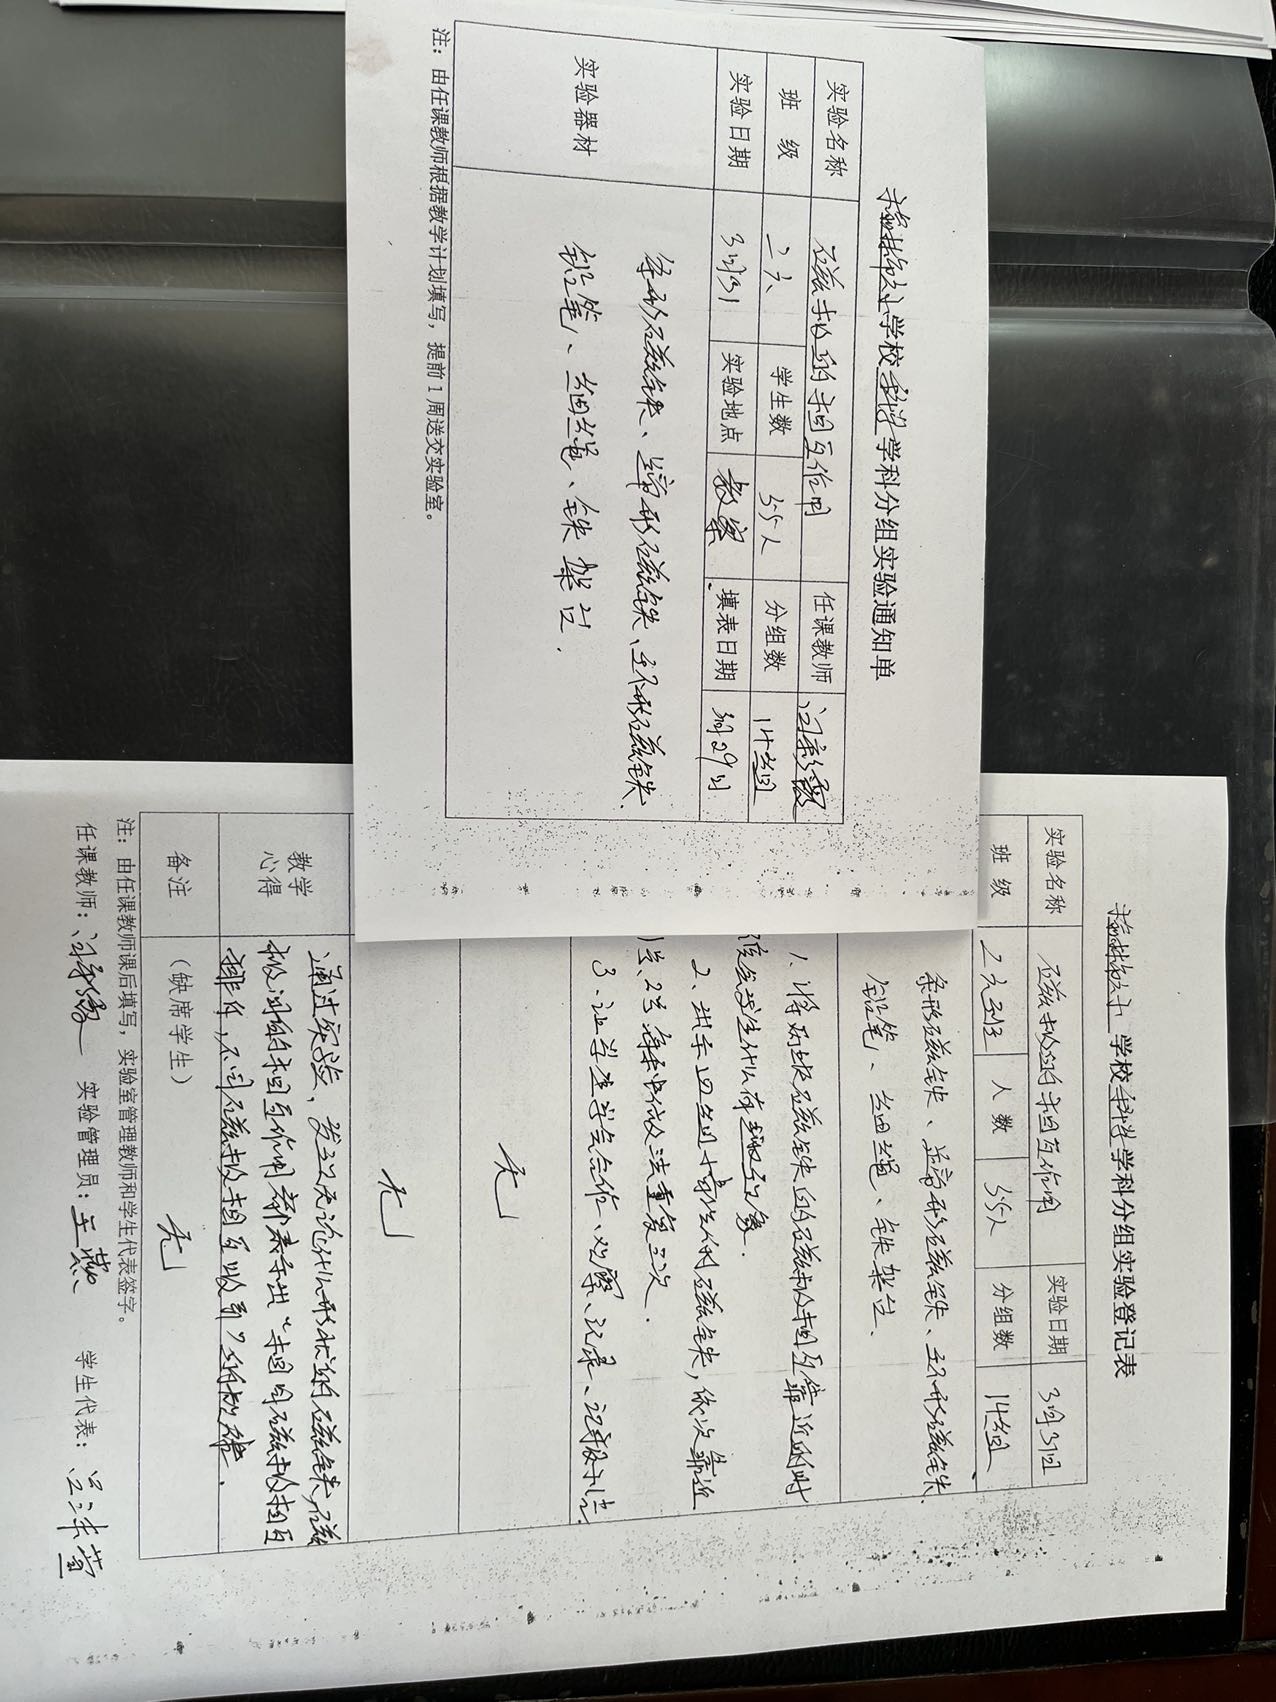 学校科学学科分组实验通知单
实验名称 磁极间的相互作用 任课教师
班 级 二六 学生数 55人 分组数 14组
实验日期 3月31 实验地点 教室 填表日期 3月29日
实验器材
条形磁铁、蹄形磁铁、环形磁铁、
铅笔、细绳、铁架台.
注：由任课教师根据教学计划填写，提前1周送交实验室。
学校科学学科分组实验登记表
实验名称 磁极间的相互作用 实验日期 3月31日
班 级 2六班 人数 55人 分组数 14组
条形磁铁、蹄形磁铁、环形磁铁、
铅笔、细绳、铁架台、
1、将两块磁铁的磁极相互靠近的时
会发生什么有趣现象.
2、出示四组的磁铁，依次靠近
重复三次.
3、让学生学会合作、观察、记录、
无
无
教学心得
通过实验，发现无论什么形状的磁铁，磁
极间的相互作用都表示出“相同磁极相互
排斥，不同磁极相互吸引”的规律.
备注 （缺席学生） 无
注：由任课教师课后填写，实验室管理教师和学生代表签字。
任课教师： 实验管理员：王燕 学生代表：